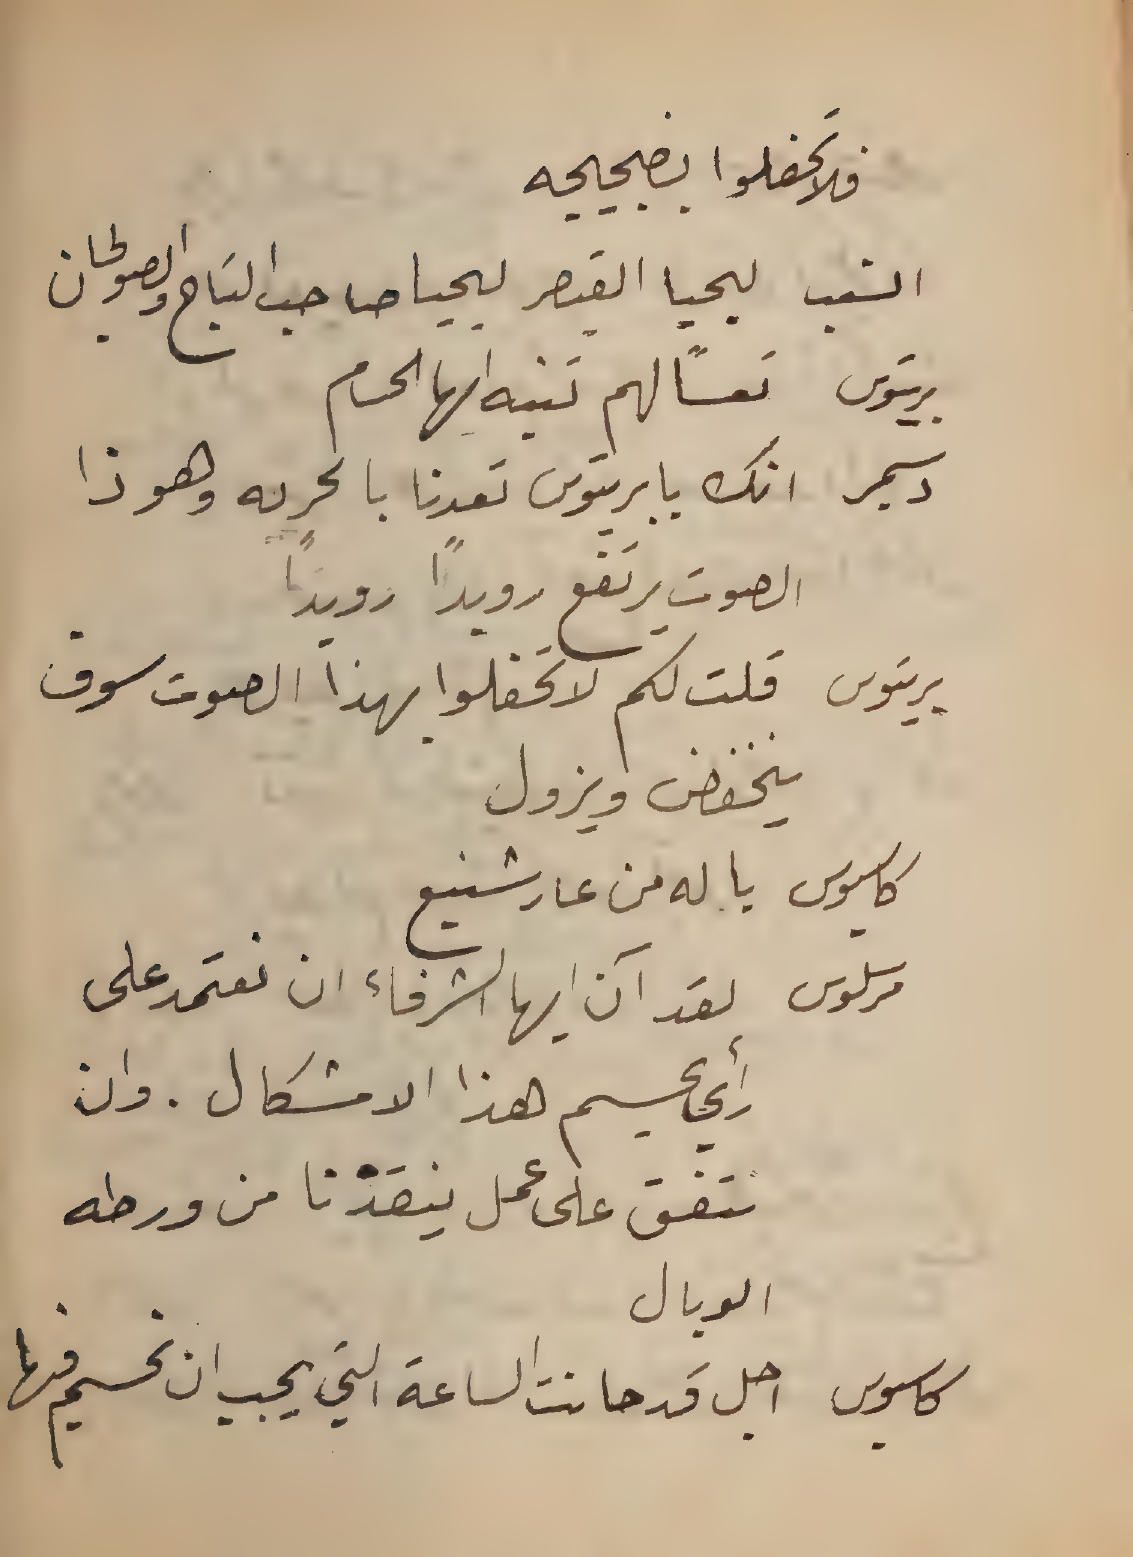 فلا تحفلوا بضجيجه
الشعب ليحيا القيصر ليحيا صاحب التاج والصولجان
بريتوس تعسًا لهم تنبه ايها الحسام
دسمر انك يا بريتوس تعدنا بالحريه وهوذا
الصوت يرتفع رويدًا رويدًا
بريتوس قلت لكم لا تحفلوا بهذا الصوت سوف
ينخفض ويزول
كاسيوس يا له من عار شنيع
مرسلوس لقد آن ايها الشرفاء ان نعتمد على
رأي يحسم هذا الامشكال . وان
نتفق على عمل ينقذنا من ورطه
الوبال
كاسيوس اجل قد حانت الساعة التي يجب ان نحسم فيها